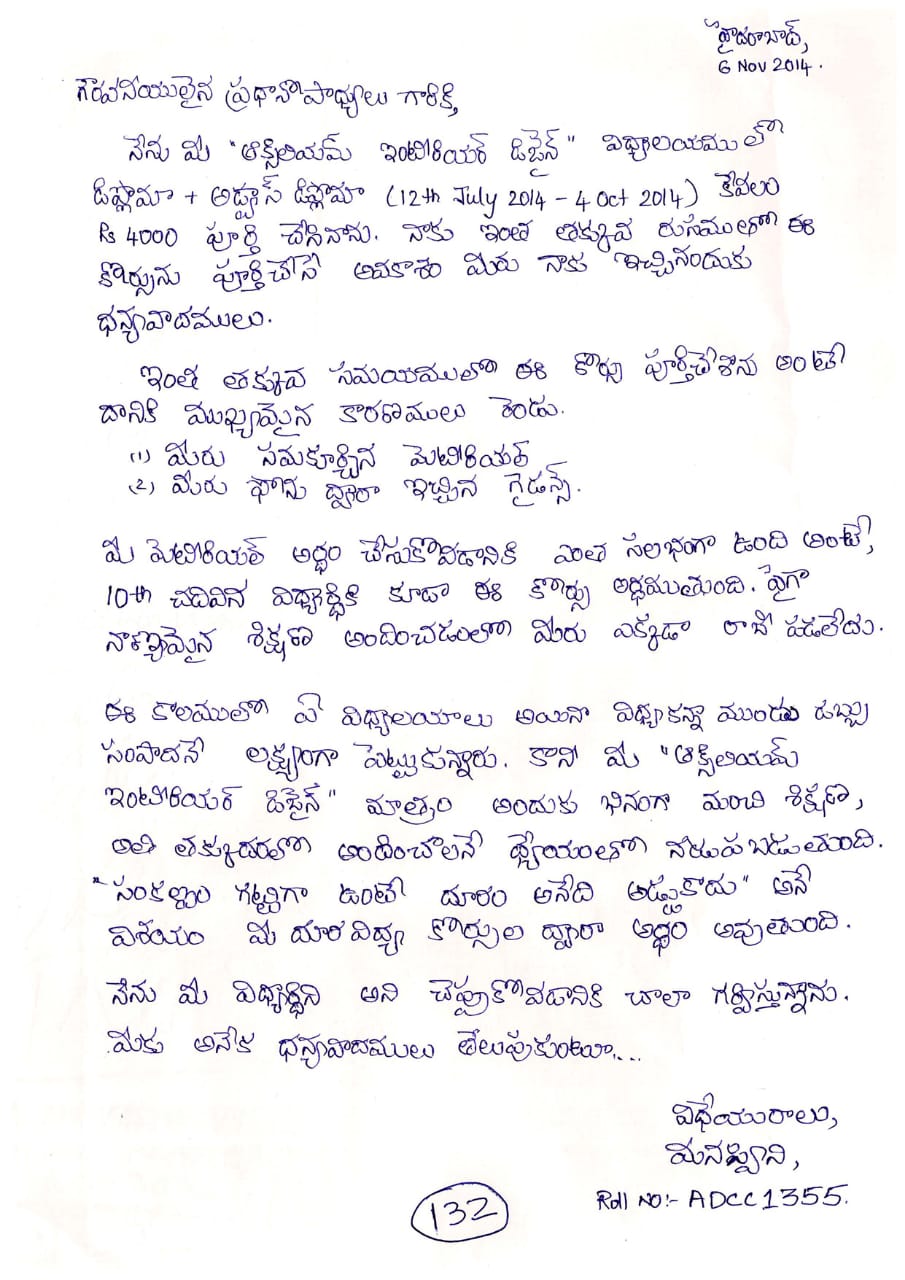 హైదరాబాద్,
6 Nov 2014.
గౌరవనీయులైన ప్రధానోపాధ్యులు గారికి
నేను మీ "ఆక్సీలియమ్ ఇంటిరియర్ డిజైన్" విద్యాలయములో
డిప్లామా + అడ్వాన్స్ డిప్లొమా (12th July 2014 - 4 Oct 2014) కేవలం
Rs 4000 పూర్తి చేసినాను. నాకు ఇంత తక్కువ రుసములో ఈ
కోర్సును పూర్తిచేసే అవకాశం మీరు నాకు ఇచ్చినందుకు
ధన్యవాదములు.
ఇంత తక్కువ సమయములో ఈ కోర్సు పూర్తిచేశాను అంటే
దానికి ముఖ్యమైన కారణములు రెండు.
(1) మీరు సమకూర్చిన మెటిరియల్
(2) మీరు ఫోను ద్వారా ఇచ్చిన గైడన్స్.
మీ మెటిరియల్ అర్థం చేసుకోవడానికి ఎంత సులభంగా ఉంది అంటే,
10th చదివిన విద్యార్థికి కూడా ఈ కోర్సు అర్థమౌతుంది. పైగా
నాణ్యమైన శిక్షణ అందించడంలో మీరు ఎక్కడా రాజీ పడలేదు.
ఈ కాలములో ఏ విద్యాలయాలు అయినా విద్యకన్నా ముందు డబ్బు
సంపాదనే లక్ష్యంగా పెట్టుకున్నారు. కాని మీ "ఆక్సీలియమ్
ఇంటిరియర్ డిజైన్" మాత్రం అందుకు భినంగా మంచి శిక్షణ,
అతి తక్కుదరలో అందించాలనే ధ్యేయంతో నడుపబడుతుంది.
"సంకల్పం గట్టిగా ఉంటే దూరం అనేది అడ్డుకాదు" అనే
విశయం మీ దూరవిద్య కోర్సుల ద్వారా అర్థం అవుతుంది.
నేను మీ విద్యార్థిని అని చెప్పుకోవడానికి చాలా గర్విస్తున్నాను.
మీకు అనేక ధన్యవాదములు తెలుపుకుంటూ...
విధేయురాలు,
మనస్విని,
Roll No:- ADCC1355.
132